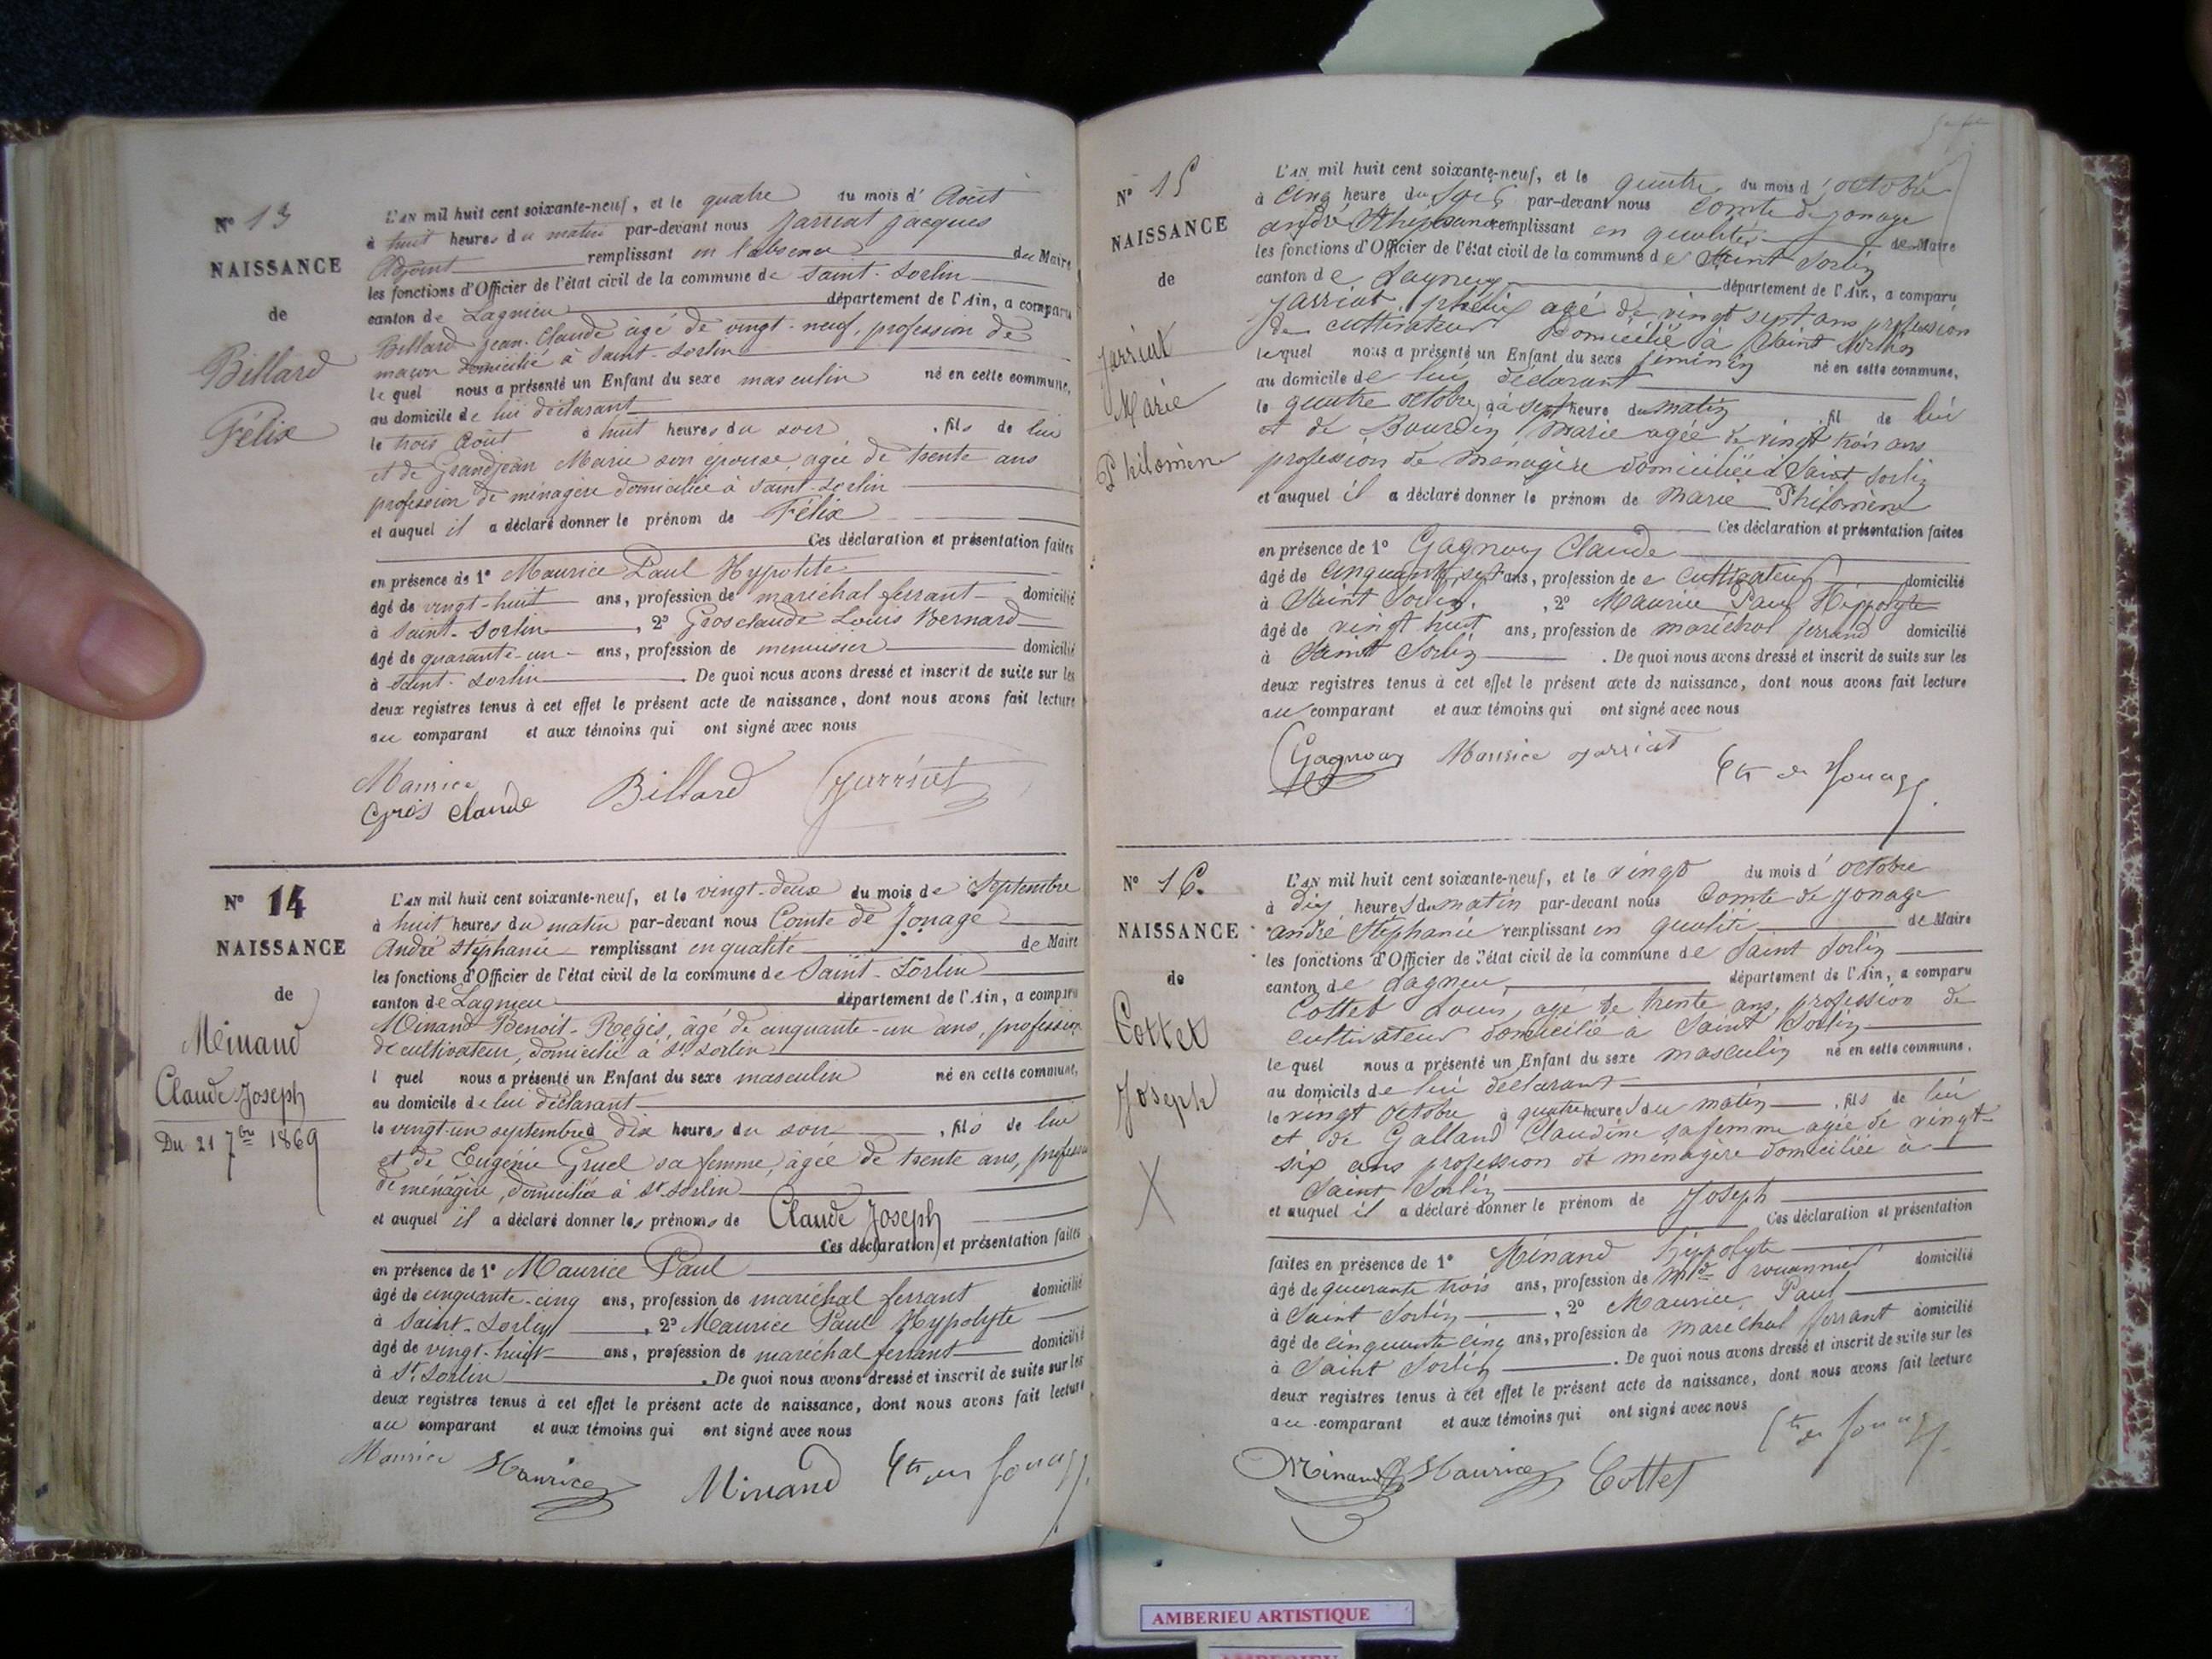 N° 13
NAISSANCE
de
Billard
Félix
L'AN mil huit cent soixante-neuf, et le quatre du mois d' Août
à huit heures du matin par-devant nous Jarriat Jacques
Adjoint remplissant en l'absence du Maire
les fonctions d'Officier de l'état civil de la commune de Saint-Sorlin
canton de Lagnieu département de l'Ain, a comparu
Billard Jean-Claude âgé de vingt-neuf, profession de
maçon domicilié à Saint-Sorlin
le quel nous a présenté un Enfant du sexe masculin né en cette commune,
au domicile de lui déclarant
le trois Août à huit heures du soir , fils de lui
et de Grandjean Marie son épouse, agée de trente ans
profession de ménagère domiciliée à Saint-Sorlin
et auquel il a déclaré donner le prénom de Félix
Ces déclaration et présentation faites
en présence de 1° Maurice Paul Hypolite
âgé de vingt-huit ans, profession de maréchal ferrant domicilié
à Saint-Sorlin , 2° Grosclaude Louis Bernard
âgé de quarante-un ans, profession de menuisier domicilié
à Saint-Sorlin . De quoi nous avons dressé et inscrit de suite sur les
deux registres tenus à cet effet le présent acte de naissance, dont nous avons fait lecture
au comparant et aux témoins qui ont signé avec nous
Maurice
Gros Claude Billard Jarriat
N° 14
NAISSANCE
de
Minand
Claude Joseph
Du 21 7bre 1869
L'AN mil huit cent soixante-neuf, et le vingt-deux du mois de Septembre
à huit heures du matin par-devant nous Comte de Jonage
André Stéphanie remplissant en qualité de Maire
les fonctions d'Officier de l'état civil de la commune de Saint-Sorlin
canton de Lagnieu département de l'Ain, a comparu
Minand Benoit-Régis, âgé de cinquante-un ans, profession
de cultivateur, domicilié à St Sorlin
l quel nous a présenté un Enfant du sexe masculin né en cette commune,
au domicile de lui déclarant
le vingt-un septembre à dix heures du soir , fils de lui
et de Eugénie Gruel sa femme, âgée de trente ans, profession
de ménagère, domiciliée à St Sorlin
et auquel il a déclaré donner les prénoms de Claude Joseph
Ces déclaration et présentation faites
en présence de 1° Maurice Paul
âgé de cinquante-cinq ans, profession de maréchal ferrant domicilié
à Saint-Sorlin , 2° Maurice Paul Hypolyte
âgé de vingt-huit ans, profession de maréchal ferrant domicilié
à St Sorlin . De quoi nous avons dressé et inscrit de suite sur les
deux registres tenus à cet effet le présent acte de naissance, dont nous avons fait lecture
au comparant et aux témoins qui ont signé avec nous
Maurice Maurice Minand Cte de Jonage
N° 15
NAISSANCE
de
Jarriat
Marie
Philomène
L'AN mil huit cent soixante-neuf, et le quatre du mois d' octobre
à cinq heure du soir par-devant nous Comte de Jonage
andré remplissant en qualité de Maire
les fonctions d'Officier de l'état civil de la commune de Saint Sorlin
canton de Lagnieu département de l'Ain, a comparu
Jarriat agé de vingt sept ans profession
de cultivateur Domicilié à Saint Sorlin
lequel nous a présenté un Enfant du sexe féminin né en cette commune,
au domicile de lui déclarant
le quatre octobre, à sept heure du matin , fil de lui
et de Bourdin Marie agée de vingt trois ans
profession de ménagère domiciliée à Saint Sorlin
et auquel il a déclaré donner le prénom de Marie Philomène
Ces déclaration et présentation faites
en présence de 1° Gagnoux Claude
âgé de cinquante sept ans, profession de cultivateur domicilié
à Saint Sorlin , 2° Maurice Paul Hippolyte
âgé de vingt huit ans, profession de maréchal ferrand domicilié
à Saint Sorlin . De quoi nous avons dressé et inscrit de suite sur les
deux registres tenus à cet effet le présent acte de naissance, dont nous avons fait lecture
au comparant et aux témoins qui ont signé avec nous
Gagnoux Maurice Jarriat Cte de Jonage
N° 16
NAISSANCE
de
Cottet
Joseph
X
L'AN mil huit cent soixante-neuf, et le vingt du mois d' octobre
à dix heures du matin par-devant nous Comte de Jonage
andré Stéphanie remplissant en qualité de Maire
les fonctions d'Officier de l'état civil de la commune de Saint Sorlin
canton de Lagnieu département de l'Ain, a comparu
Cottet Louis, agé de trente ans, profession de
cultivateur domicilié a Saint Sorlin
le quel nous a présenté un Enfant du sexe masculin né en cette commune,
au domicile de lui déclarant
le vingt octobre à quatre heures du matin , fils de lui
et de Galland Claudine sa femme agée de vingt-
six ans profession de ménagère domiciliée à
Saint Sorlin
et auquel il a déclaré donner le prénom de Joseph
Ces déclaration et présentation
faites en présence de 1° Minand hippolyte
âgé de quarante trois ans, profession de domicilié
à Saint Sorlin , 2° Maurice Paul
âgé de cinquante cinq ans, profession de maréchal ferrant domicilié
à Saint Sorlin . De quoi nous avons dressé et inscrit de suite sur les
deux registres tenus à cet effet le présent acte de naissance, dont nous avons fait lecture
au comparant et aux témoins qui ont signé avec nous
Cte de Jonage
Minand Maurice Cottet
AMBERIEU ARTISTIQUE
AMBERIEU